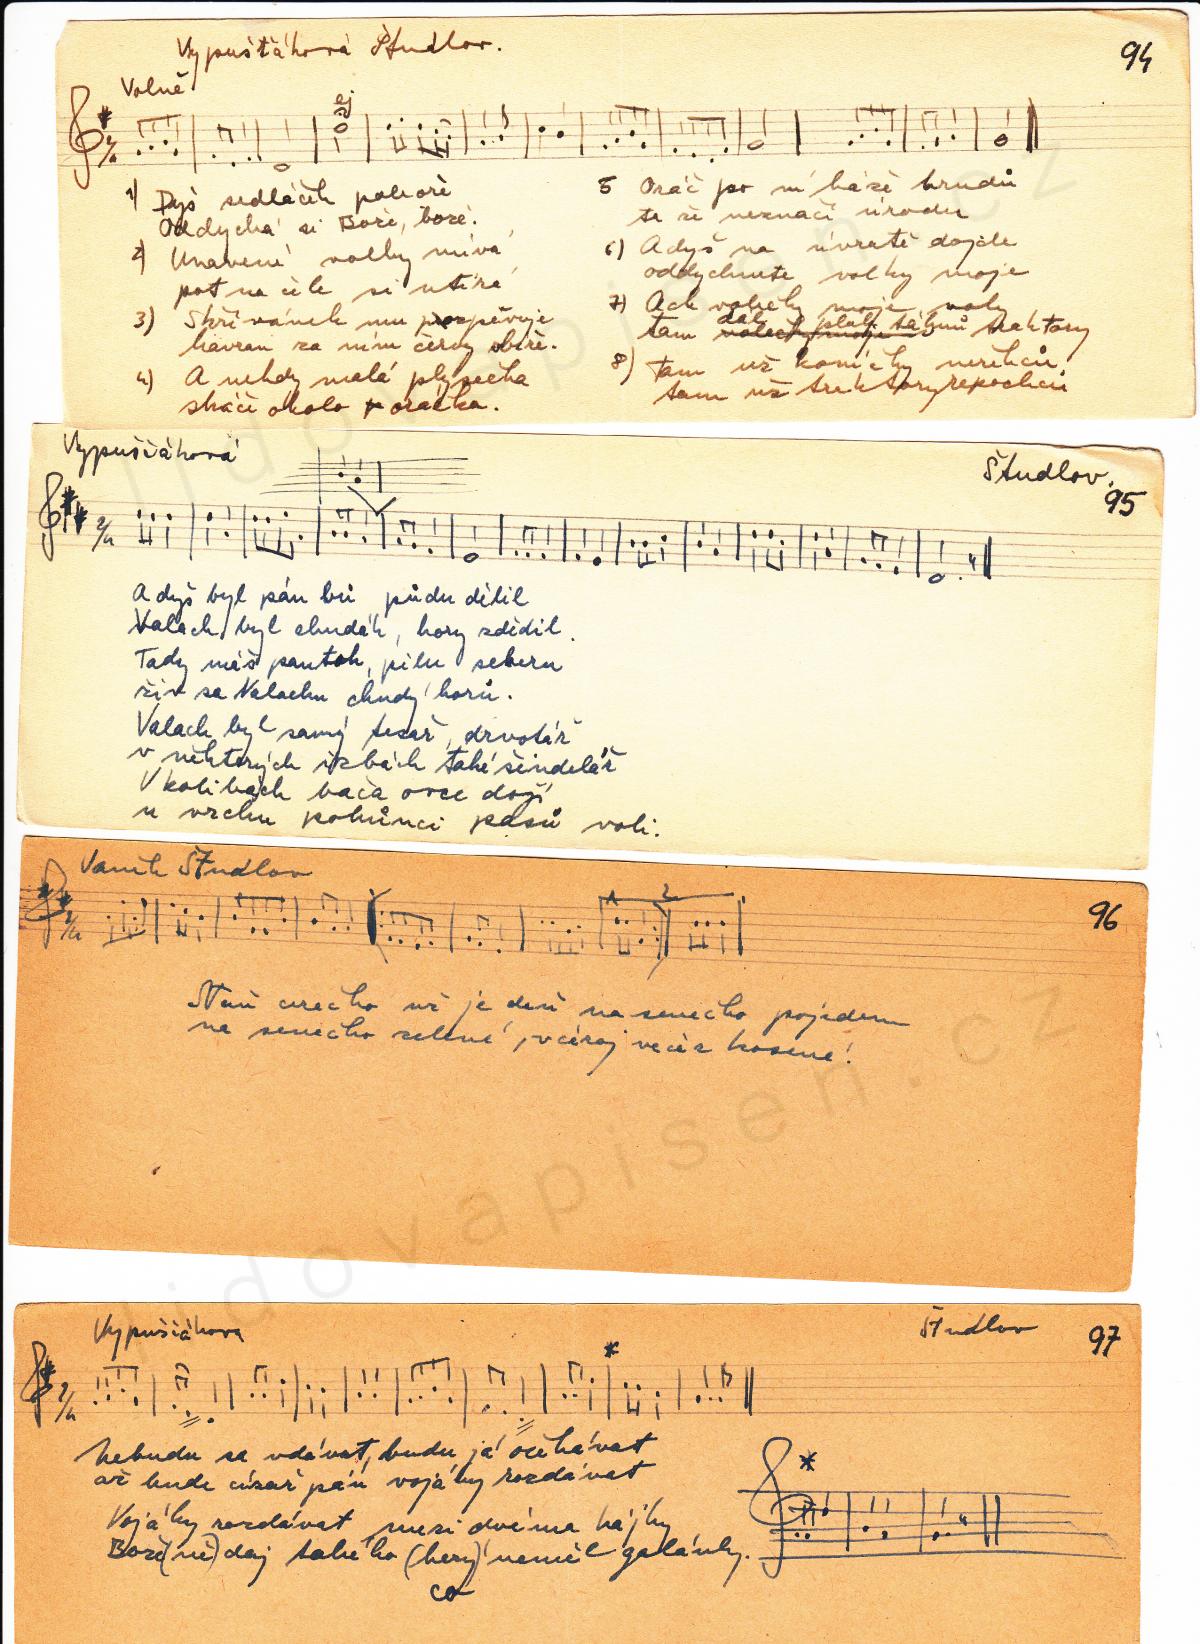 Vypušťáhová Študlov.
94
Volně
ej
1) Dyš sedláček pole oře
Oddychá si Bože, bože.
2) Unavené volky mívá,
pot na čele si utírá
3) Skřivánek mu prozpěvuje
havran za ním červy sbíře.
4) A někdy malá plysecha
skáče okolo oráčka.
5 Oráč po ní háže hrudů
ta že neznačí úrodu
6) A dyš na úvratě dojde
oddychnite volky moje
7) Ach volečky moje, vole
tam dál táhnú traktory
8) Tam už koníčky neřehcú,
tam už traktory řepochcú
Vypuščáhová
Študlov.
95
A dyš byl pán bů půdu dělil
Valach byl chudák, hory zdědil.
Tady máš pantok, pilu sekeru
živ sa Valachu chudý horú.
Valach byl samý tesař, drvotář
v některých izbách také šindelář
V kolibách bača ovce dojí
u vrchu pohůnci pasú voli.
Vaněk Študlov
96
1 2
Staň cérečko už je deň na senečko pojedem
na senečko zelené, včéraj večér kosené!
Vypuščáhova
Študlov
97
*
Nebudu sa vdávat, budu já očekávat
až bude císař pán vojáky rozdávat
Vojáky rozdávat mezi dvěma hájky
Bože (ně) daj takého (kerý) neměl galánky.
co
*